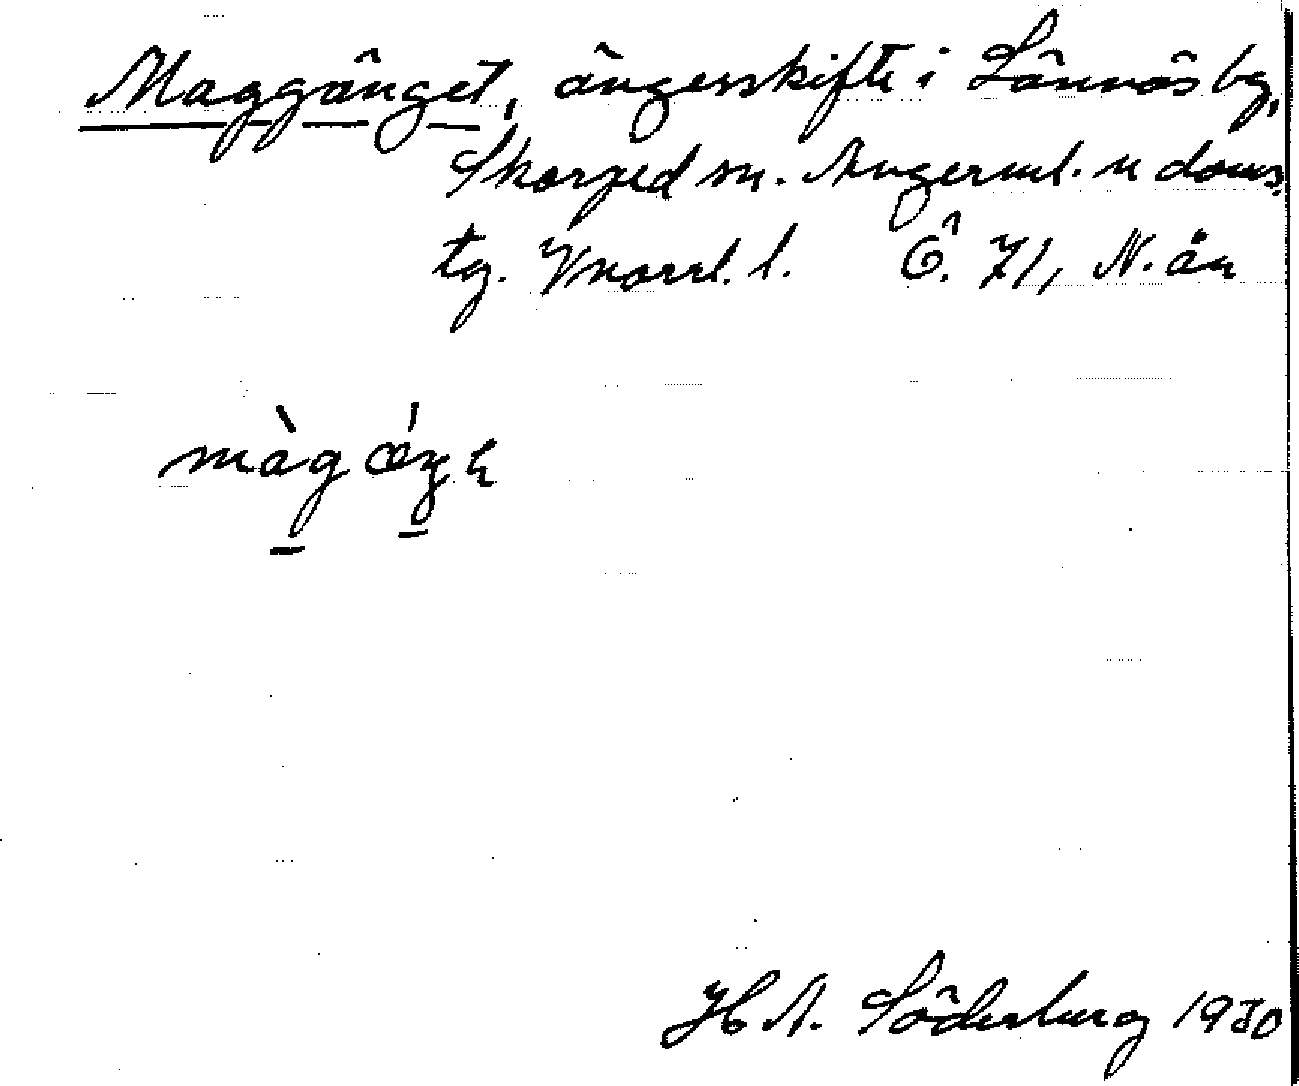 Maggänget, ängesskifte i Lännäs by,
Skorped sn. Ångerml. n doms.
tg. Vnorrl. l. Ö. 71, N. ån
màg ǽŋ
H A. Söderberg 1930